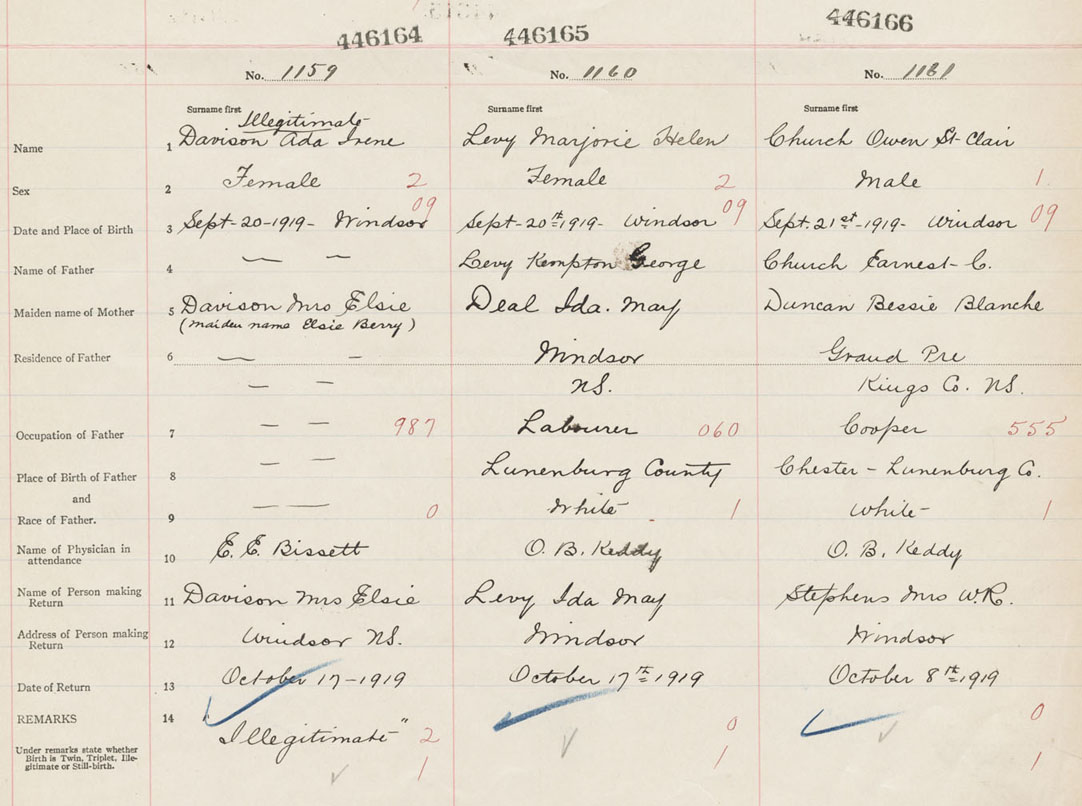 446164 446165 446166
No. 1159 No. 1160 No. 1161
Surname first Surname first Surname first
Illegitimate
Name 1 Davison Ada Irene Levy Marjorie Helen Church Owen St Clair
Sex 2 Female 2 Female 2 Male 1
09 09 09
Date and Place of Birth 3 Sept-20-1919- Windsor Sept-20th 1919- Windsor Sept. 21st-1919- Windsor
Name of Father 4 — — Levy Kempton George Church Earnest-C.
Maiden name of Mother 5 Davison Mrs Elsie Deal Ida. May Duncan Bessie Blanche
(maiden name Elsie Berry)
Residence of Father 6 — - Windsor Grand Pre
— — NS. Kings Co. NS.
Occupation of Father 7 — — 987 Labourer 060 Cooper 555
Place of Birth of Father 8 — — Lunenburg County Chester-Lunenburg Co.
and
Race of Father. 9 — — 0 White - 1 White- 1
Name of Physician in attendance 10 E. E. Bissett O. B. Keddy O. B. Keddy
Name of Person making Return 11 Davison Mrs Elsie Levy Ida May Stephens Mrs W.R.
Address of Person making Return 12 Windsor NS. Windsor Windsor
Date of Return 13 October 17-1919 October 17th 1919 October 8th 1919
REMARKS 14 "Illegitimate" 2 0 0
Under remarks state whether Birth is Twin, Triplet, Illegitimate or Still-birth. 1 1 1